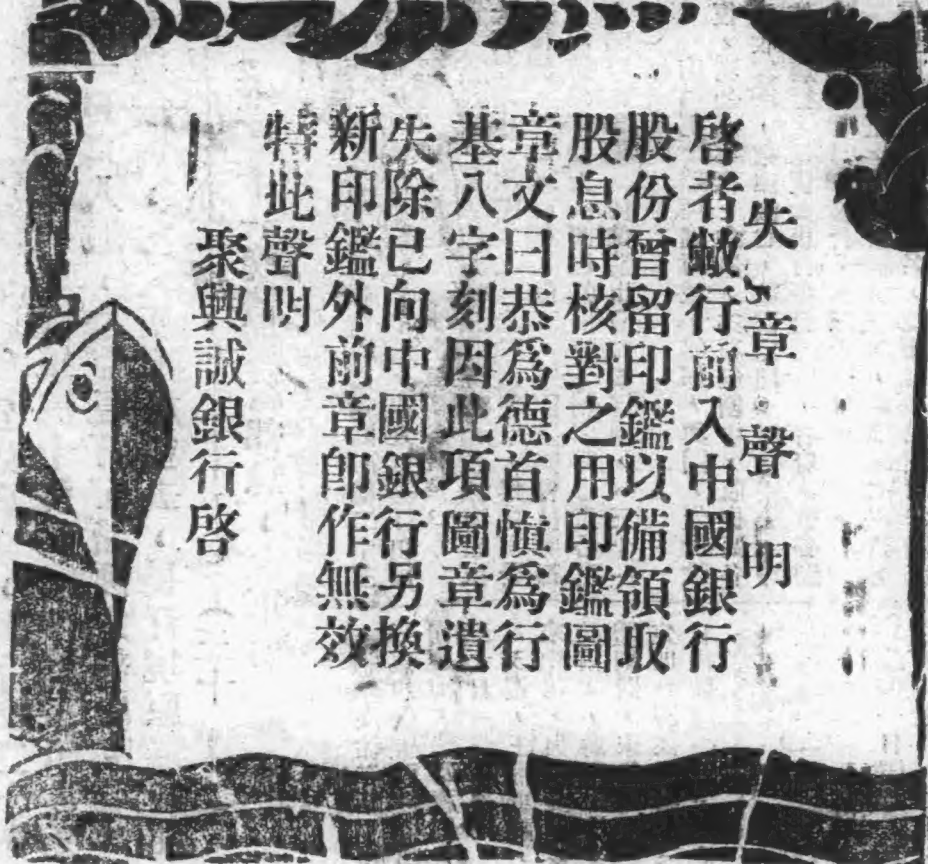 失章聲明
啓者敝行前入中國銀行
股份曾留印鑑以備領取
股息時核對之用印鑑圖
章文曰恭爲德首愼爲行
基八字刻因此項圖章遺
失除已向中國銀行另換
新印鑑外前章卽作無效
特此聲明
聚興誠銀行啓